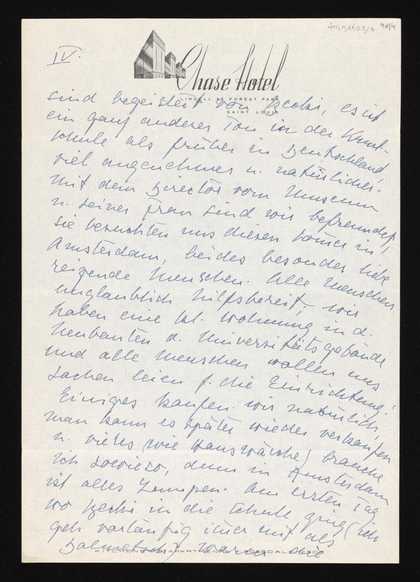 IV.
Chase Hotel
SAINT LOUIS
sind begeistert von Becki, es ist
ein ganz anderer Ton in der Kunst-
schule als früher in Deutschland
viel angenehmer u. natürlicher.
Mit dem Director vom Museum
u. seiner Frau sind wir befreundet,
sie besuchten uns diesen Somer in
Amsterdam, beides besonders nette
reizende Menschen. Alle Menschen
unglaublich hilfsbereit, wir
haben eine kl. Wohnung in d.
Neubauten d. Universitätsgebäude
und alle Menschen wollen uns
Sachen leien f. die Einrichtung!
Einiges kaufen wir natürlich
man kann es später wieder verkaufen
u. vieles (wie Hauswäsche) brauche
ich sowieso, denn in Amsterdam
ist alles Lumpen. Am ersten Tag
wo Becki in die Schule ging (ich
geh vorläufig imer mit als
Dolmetsch) waren die